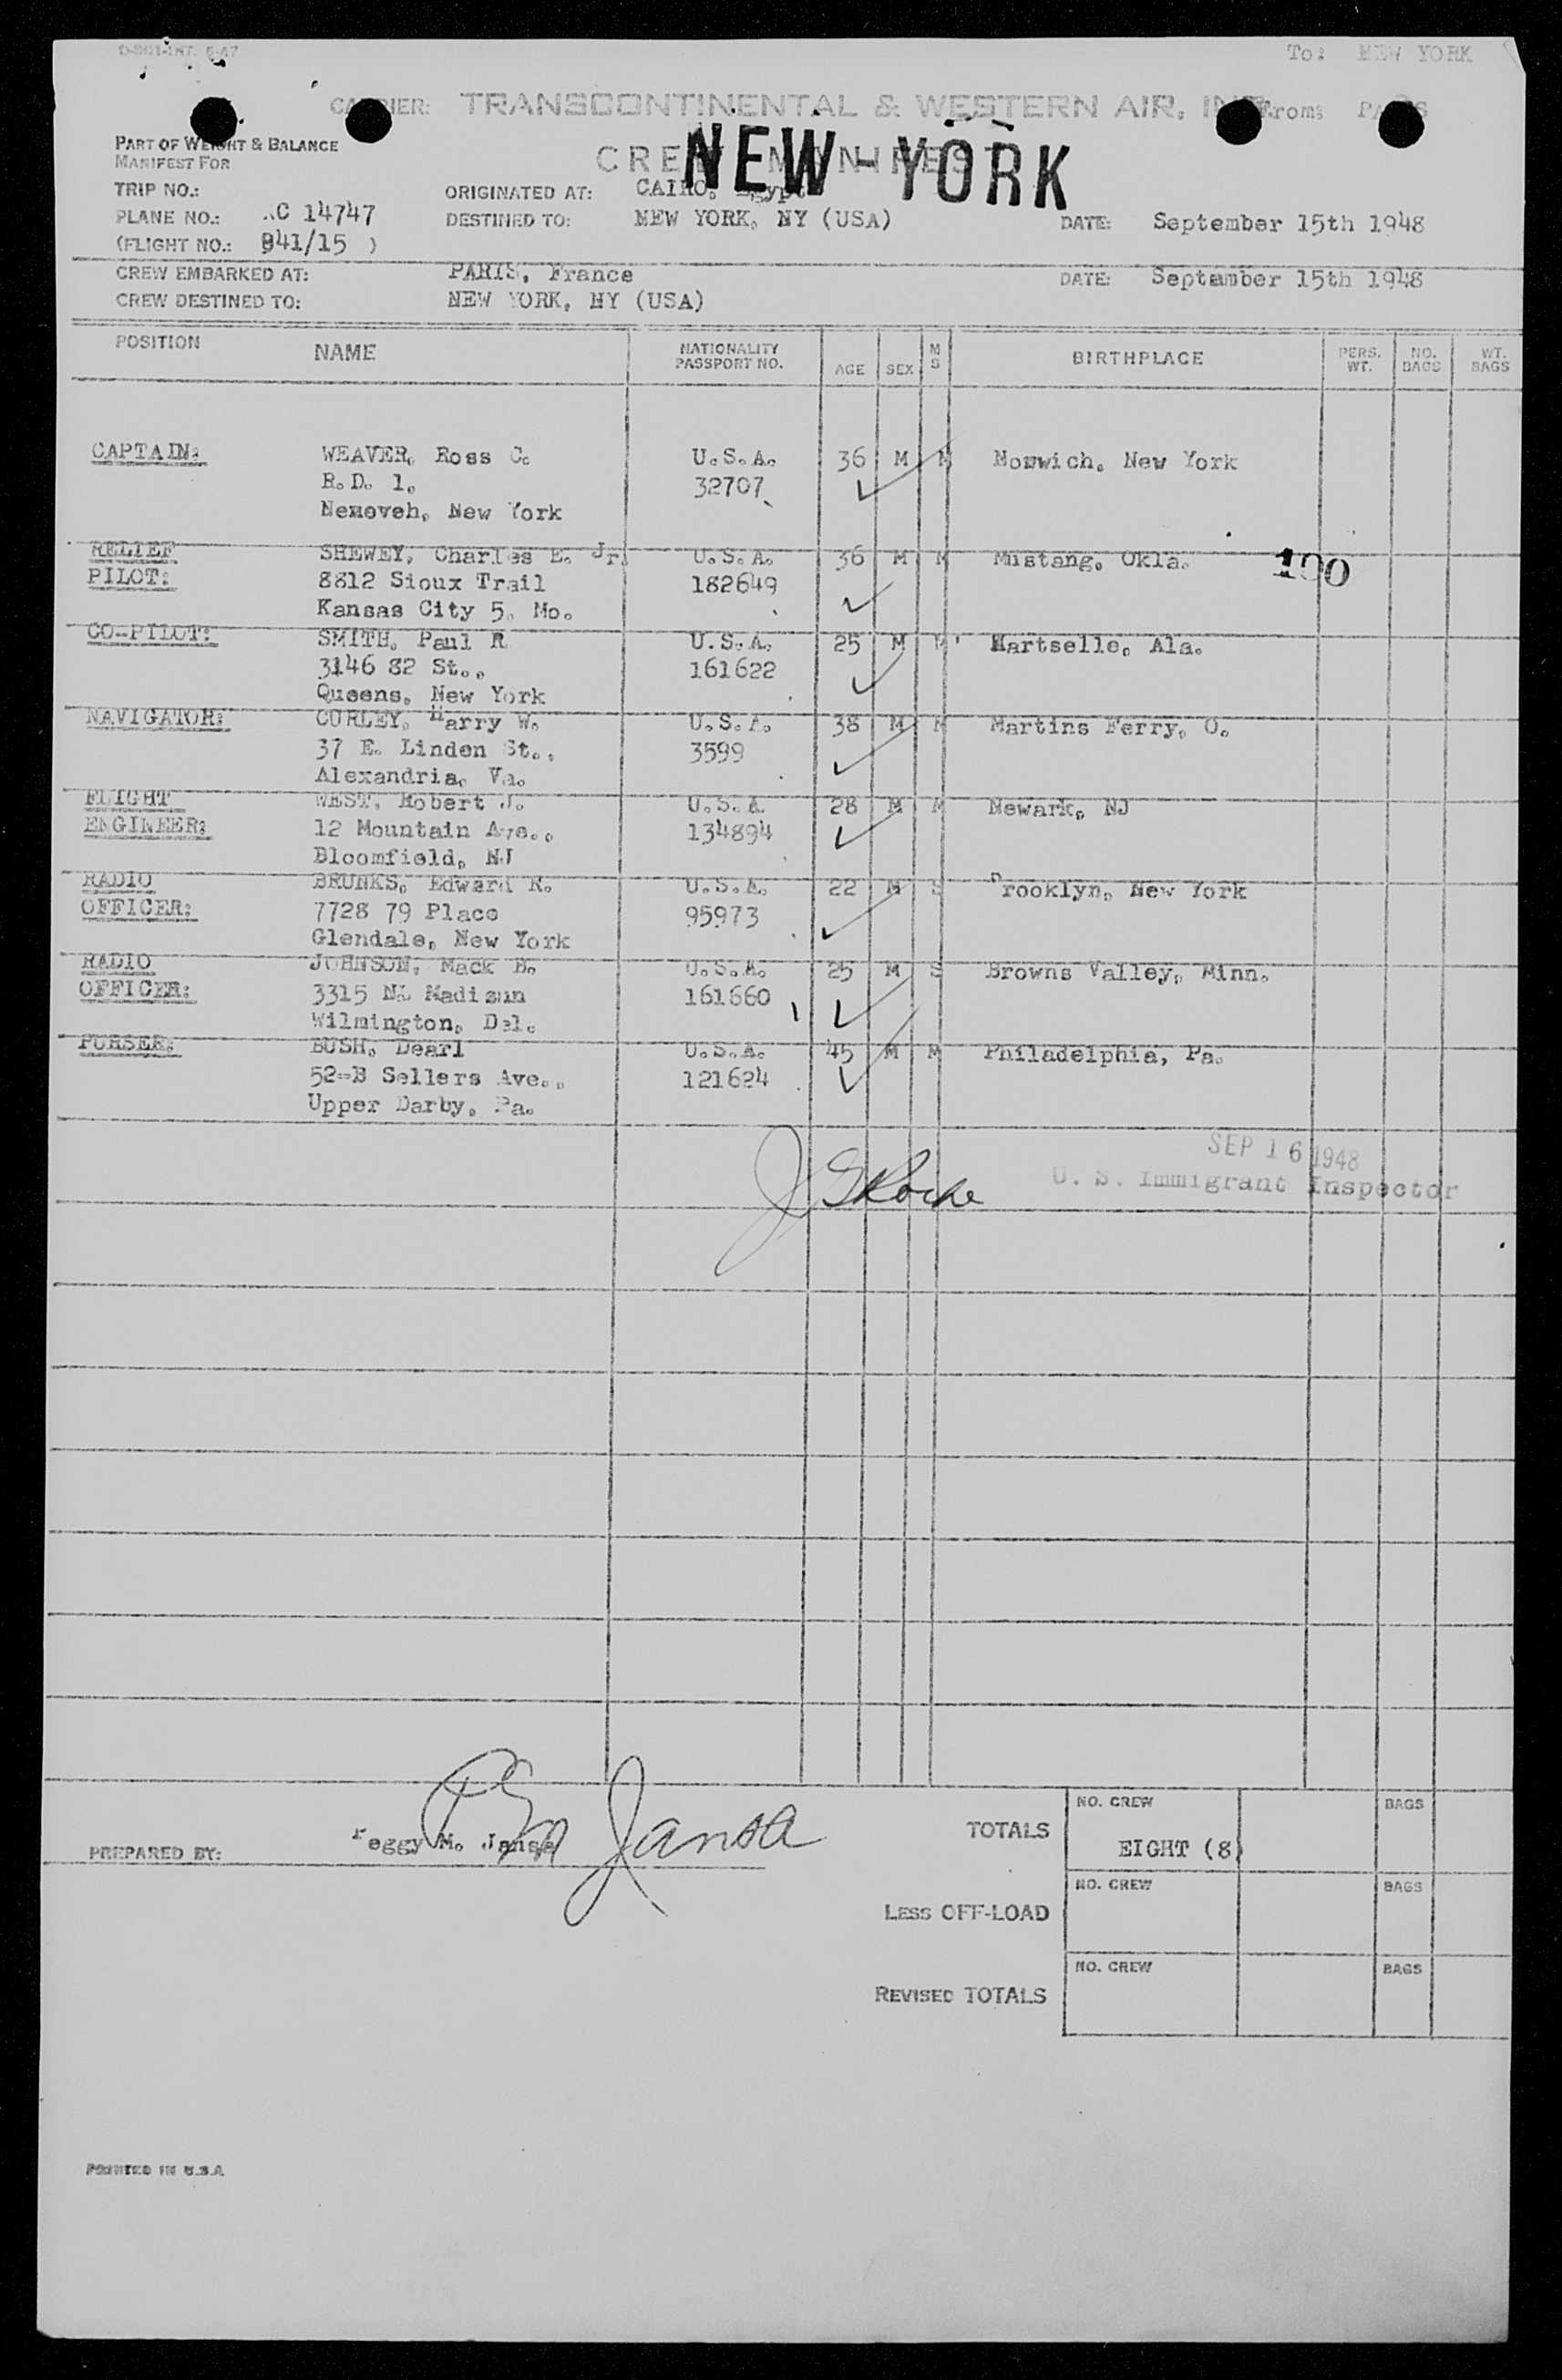 To: NEW YORK
CARRIER: TRANSCONTINENTAL & WESTERN AIR, INC. From: PARIS
PART OF WEIGHT & BALANCE
MANIFEST FOR
CREW MANIFEST
NEW YORK
TRIP NO.: ORIGINATED AT: CAIRO, Egypt
PLANE NO.: NC 14747 DESTINED TO: NEW YORK, NY (USA) DATE: September 15th 1948
(FLIGHT NO.: 941/15 )
CREW EMBARKED AT: PARIS, France DATE: September 15th 1948
CREW DESTINED TO: NEW YORK, NY (USA)
POSITION NAME NATIONALITY PASSPORT NO. AGE SEX M S BIRTHPLACE PERS. WT. NO. BAGS WT. BAGS
CAPTAIN: WEAVER, Ross C. U.S.A. 36 M M Norwich, New York
R.D. 1, 32707
New York
RELIEF SHEWEY, Charles E. Jr. U.S.A. 36 M M Mustang, Okla. 100
PILOT: 8812 Sioux Trail 182649
Kansas City 5, Mo.
CO-PILOT: SMITH, Paul R U.S.A. 25 M M Hartselle, Ala.
3146 82 St., 161622
Queens, New York
NAVIGATOR: CURLEY, Harry W. U.S.A. 38 M M Martins Ferry, O.
37 E. Linden St., 3599
Alexandria, Va.
FLIGHT WEST, Robert J. U.S.A. 28 M M Newark, NJ
ENGINEER: 12 Mountain Ave., 134894
Bloomfield, NJ
RADIO BRUNKS, Edward R. U.S.A. 22 M S Brooklyn, New York
OFFICER: 7728 79 Place 95973
Glendale, New York
RADIO JOHNSON, Mack B. U.S.A. 25 M S Browns Valley, Minn.
OFFICER: 3315 NE Madison 161660
Wilmington, Del.
PURSER: BUSH, Dearl U.S.A. 45 M M Philadelphia, Pa.
52-B Sellers Ave., 121624
Upper Darby, Pa.
SEP 16 1948
U. S. Immigrant Inspector
PREPARED BY: Peggy M. Jansa
P M Jansa
TOTALS NO. CREW EIGHT (8) BAGS
LESS OFF-LOAD NO. CREW BAGS
REVISED TOTALS NO. CREW BAGS
PRINTED IN U.S.A.